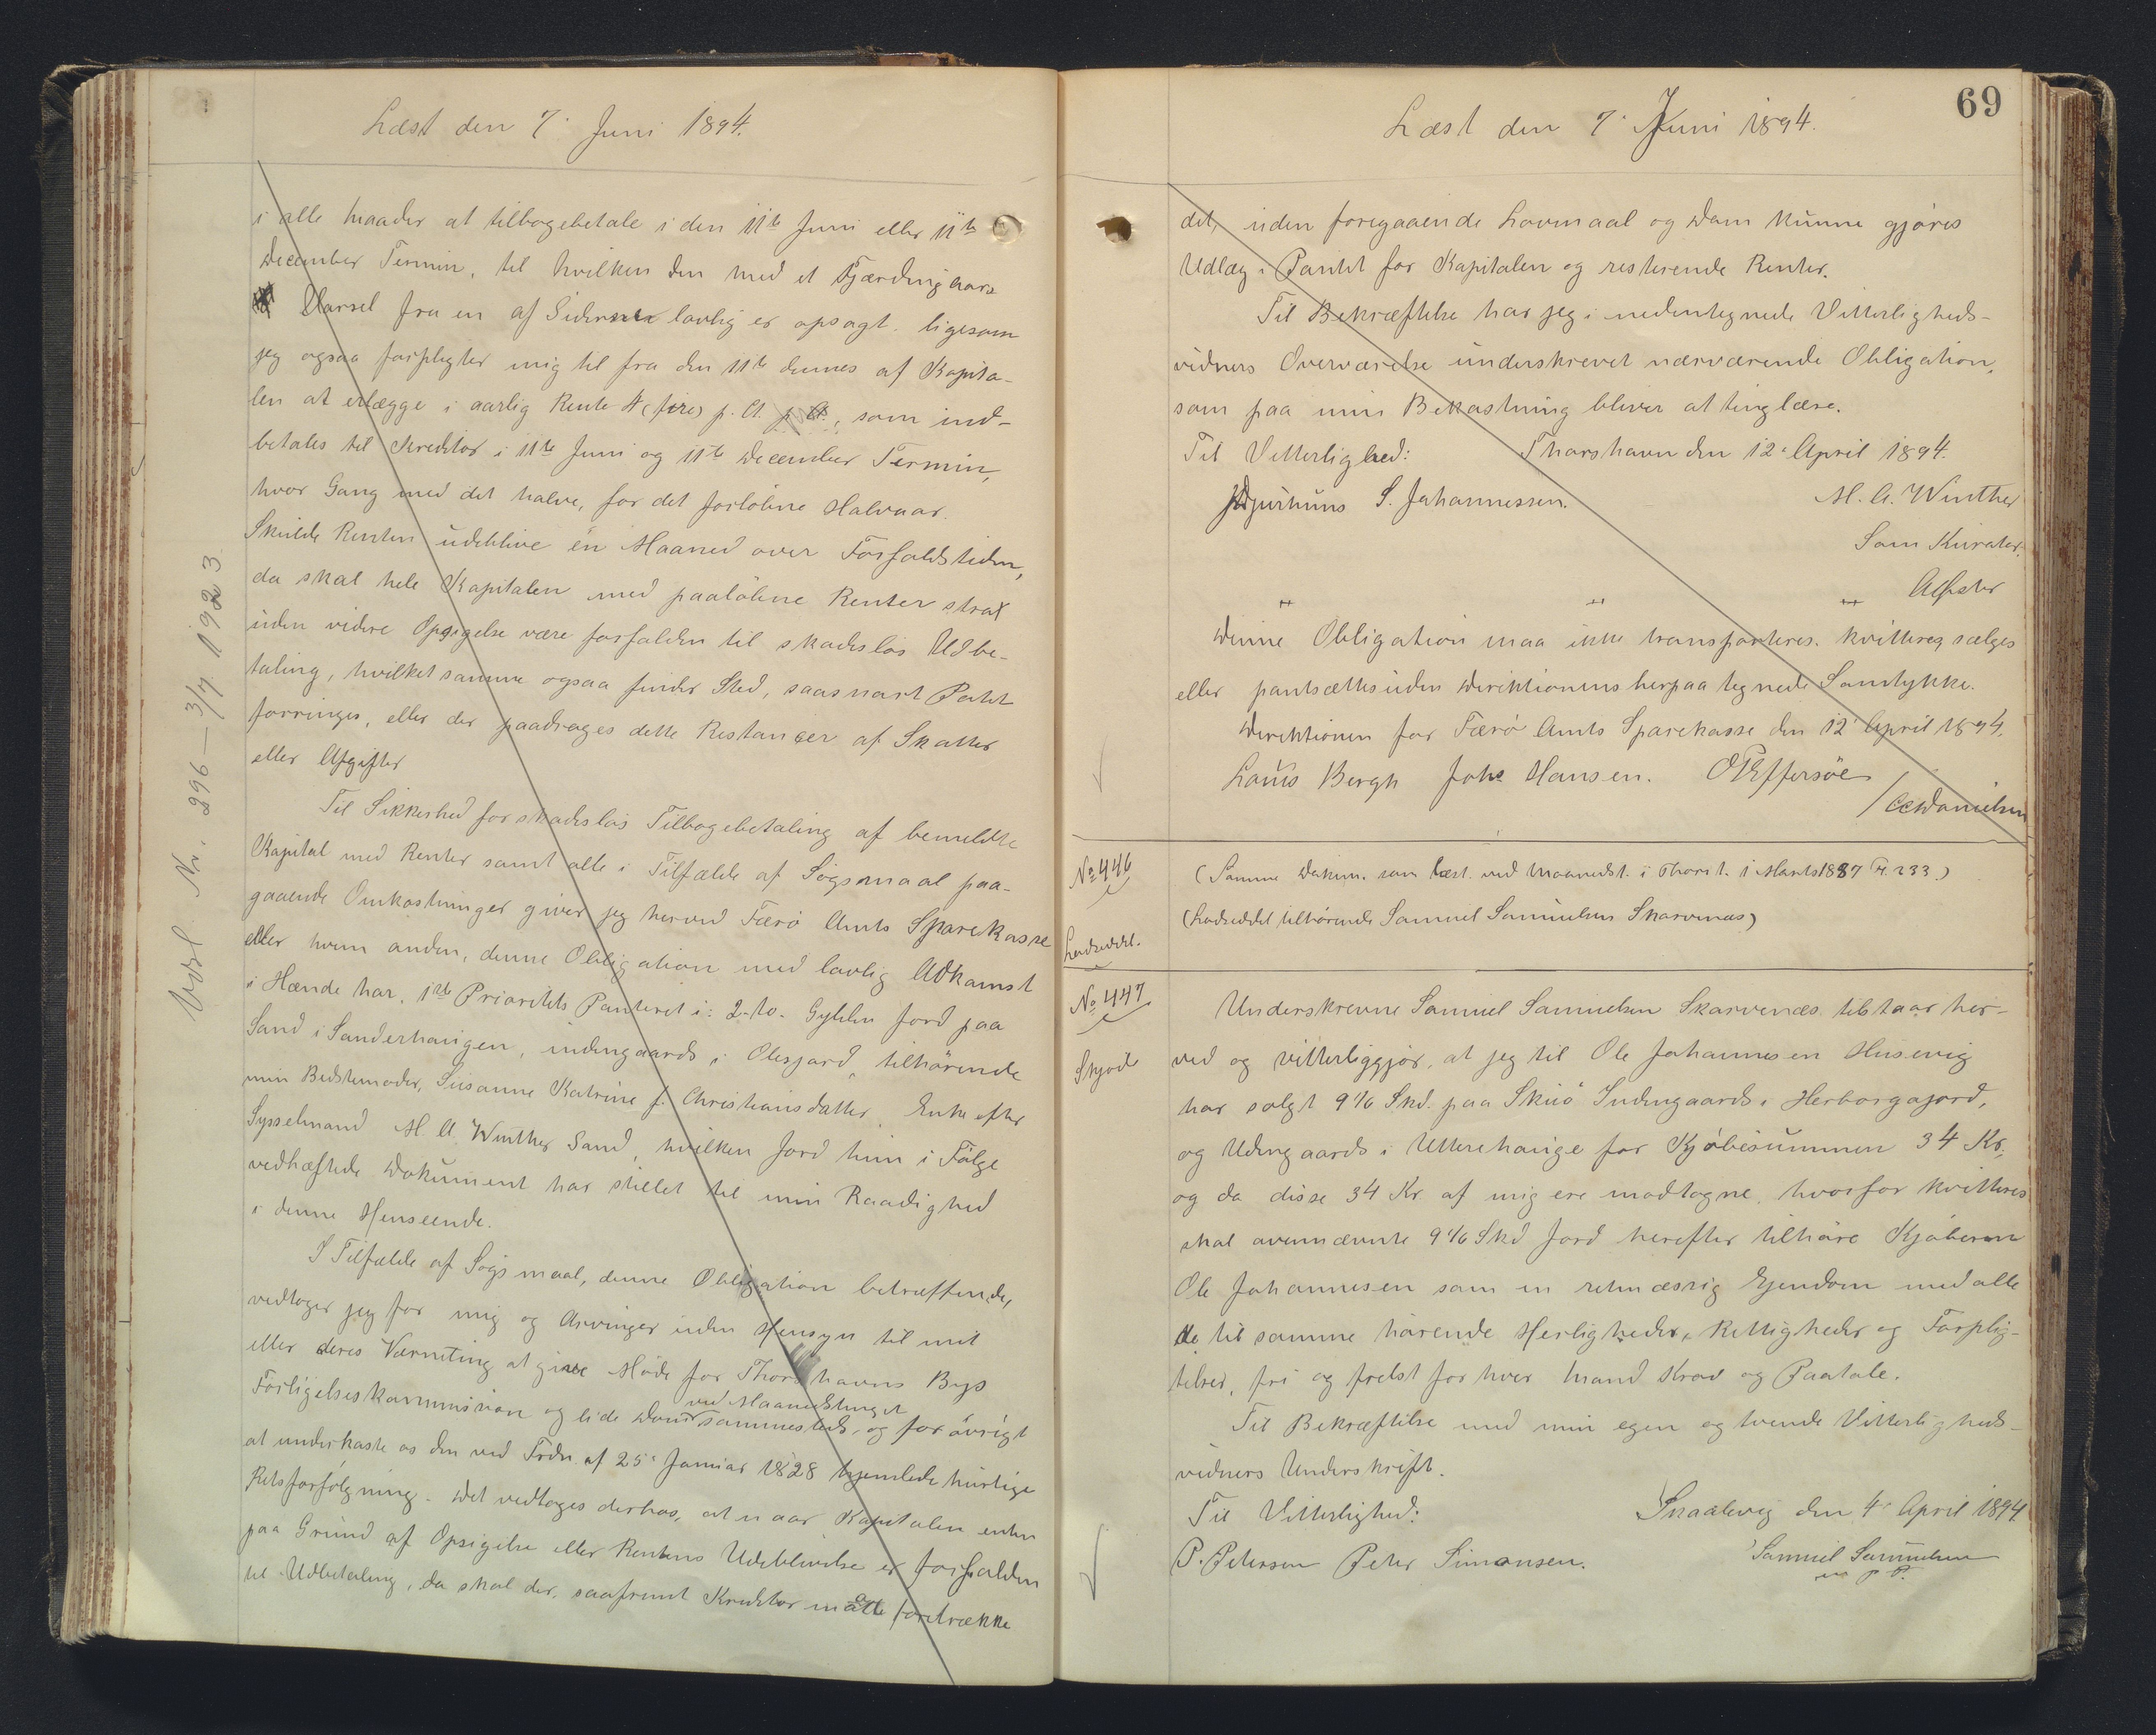 Læst den 7. Juni 1894.
i alle Maader at tilbagebetale i den 11te Juni eller 11te
December Termin, til hvilken den med et Fjerdingaars
Varsel fra en af Siderne lovlig er opsagt, ligesom
jeg ogsaa forpligter mig til fra den 11te dennes af Kapita-
len at erlægge i aarlig Rente 4 (fire) p. Ct. p. A., som ind-
betales til Kreditor i 11te Juni og 11te December Termin,
hver Gang med det halve, for det forløbne Halvaar.
Skulde Renten udeblive én Maaned over Forfaldstiden,
da skal hele Kapitalen med paaløbne Renter strax
uden videre Opsigelse være forfalden til skadesløs Udbe-
taling, hvilket samme ogsaa finder Sted, saasnart Pantet
forringes, eller der paadrages dette Restancer af Skatter
eller Afgifter
Til Sikkerhed for skadesløs Tilbagebetaling af bemeldte
Kapital med Renter samt alle i Tilfælde af Søgsmaal paa-
gaaende Omkostninger giver jeg herved Færø Amts Sparekasse
eller hvem anden, denne Obligation med lovlig Adkomst
i Hænde har, 1ste Prioritets Panteret i: 2-to- Gylden Jord paa
Sand i Sanderhaugen, indengaards i Olesjord, tilhørende
min Bedstemoder, Susanne Katrine f. Christiansdatter, Enke efter
Sysselmand M. A. Winther Sand, hvilken Jord hun i Følge
vedhæftede Dokument har stillet til min Raadighed
i denne Henseende.
I Tilfælde af Søgsmaal, denne Obligation betræffende,
vedtager jeg for mig og Arvinger uden Hensyn til mit
eller deres Værneting at give Møde for Thorshavns Bys
Forligelseskommission og lide Dom ved Maanedstinget sammesteds, og for øvrigt
at underkaste os den ved Frdn. af 25. Januar 1828 hjemlede hurtige
Retsforfølgning. Det vedtages derhos, at naar Kapitalen enten
paa Grund af Opsigelse eller Rentens Udeblivelse er forfalden
til Udbetaling, da skal der, saafremt Kreditor måtte foretrække
Vdsl. Nr. 296 - 3/7 1923
69
Læst den 7. Juni 1894.
det, uden foregaaende Lovmaal og Dom kunne gjøres
Udlæg i Pantet for Kapitalen og resterende Renter.
Til Bekræftelse har jeg i nedentegnede Vitterligheds-
vidners Overværelse underskrevet nærværende Obligation,
som paa min Bekostning bliver at tinglæse.
Til Vitterlighed: Thorshavn den 12. April 1894.
S. Johannessen. M. A. Winther
Som Kurator.
Denne Obligation maa ikke transporteres, kvitteres, sælges
eller pantsættes uden Direktionens herpaa tegnede Samtykke.
Direktionen for Færø Amts Sparekasse den 12. April 1894.
Louis Bergh Johs Hansen. O Effersøe
/ CCDanielsen
No 446
(Samme Dokum. som læst ved Maanedst. i Thorsh. 1 Marts 1887 Fr. 233.)
(Lodseddel tilhørende Samuel Samuelsen Skarvenæs)
Lodseddel.
No 447
Skjøde
Underskrevne Samuel Samuelsen Skarvenæs tilstaar her-
ved og vitterliggjør, at jeg til Ole Johannesen Husevig
har solgt 9 1/6 Skd. paa Skuø Indengaards i Herborgajord,
og Udengaards i Utterehauge for Kjøbesummen 34 Kr.,
og da disse 34 Kr. af mig ere modtagne, hvorfor kvitteres
skal ovennævnte 9 1/6 Skd Jord herefter tilhøre Kjøberen
Ole Johannesen som en retmæssig Ejendom med alle
de til samme hørende Herligheder, Rettigheder og Forplig-
telser, fri og frelst for hver Mand Krav og Paatale.
Til Bekræftelse med min egen og tvende Vitterligheds-
vidners Underskrift.
Til Vitterlighed: Skaalevig den 4. April 1894
P. Petersen Peter Simonsen. Samuel Samuelsen
m. p. P.